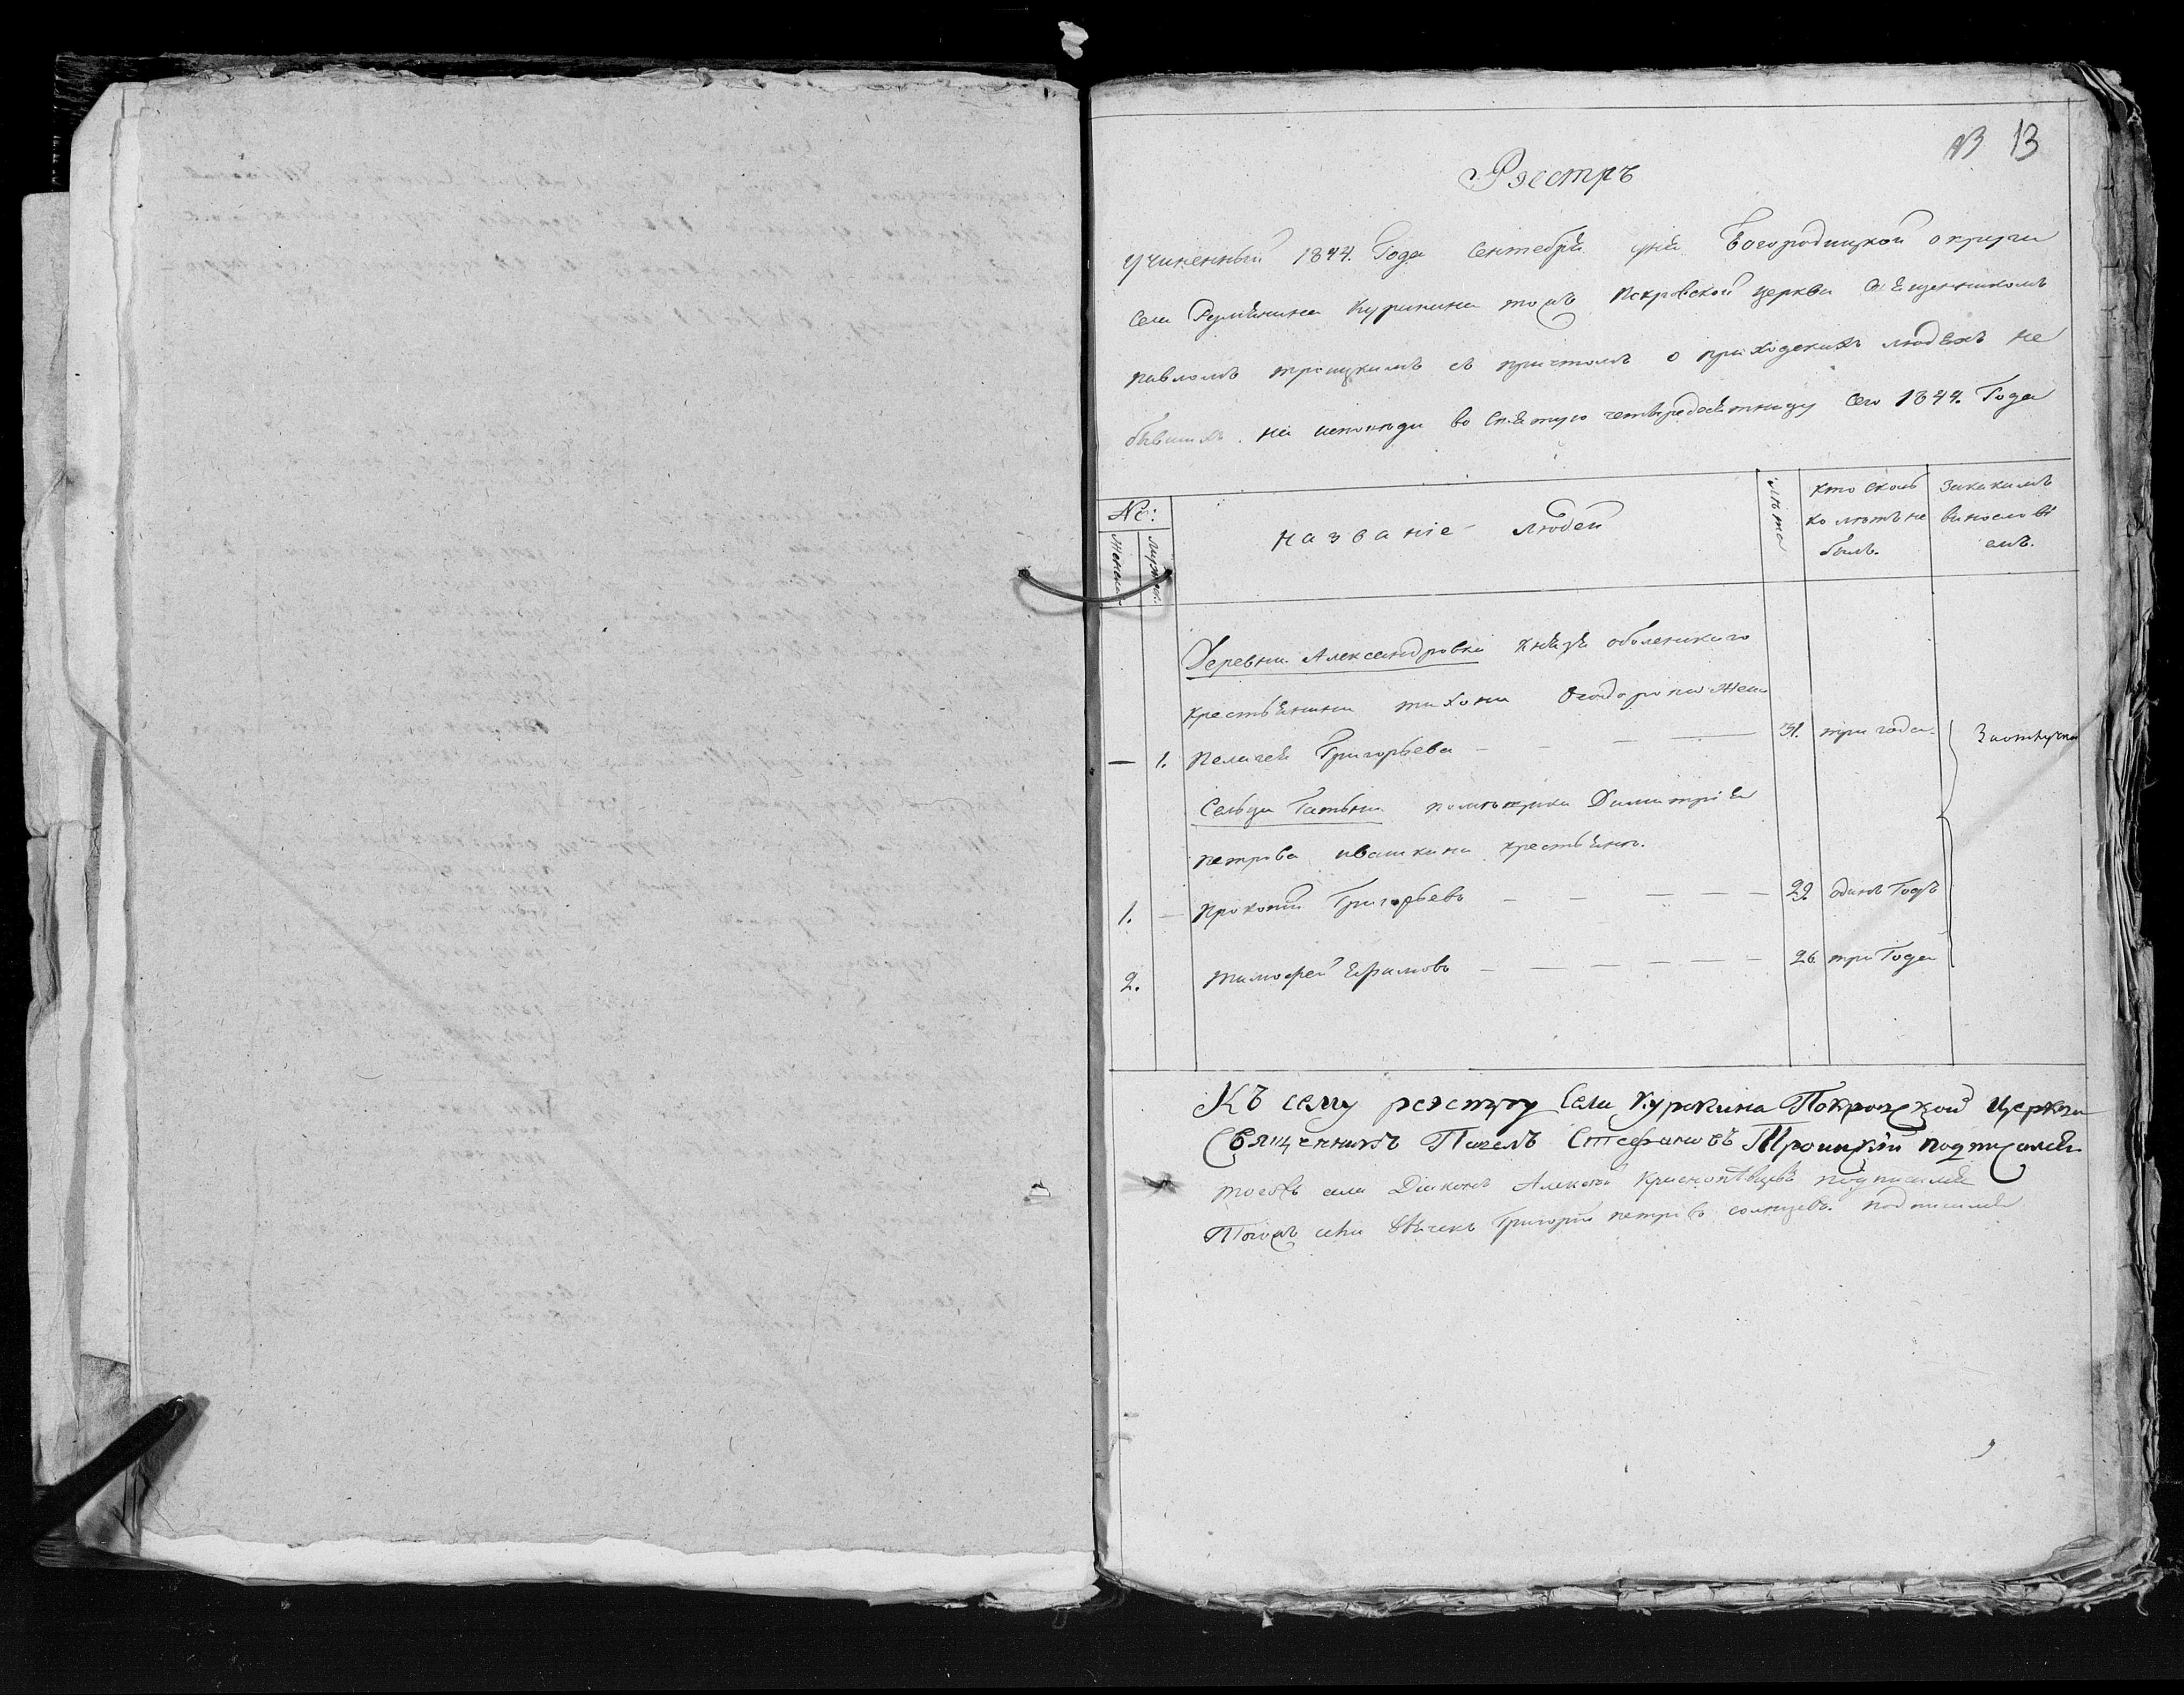 13 13
Рэестръ
Учиненный 1844. Года Сентебря дня Богородицкой округи
Села Куркина тожъ Покровской церкви Священникомъ
Павломъ троицкимъ съ причтомъ о приходскихъ людяхъ не
бывшихъ на исповеди во Святую четыредесятницу Сего 1844. Года
№:
Женска
мужеска
названіе людей
лѣта
кто сколь
ко лѣтъ не
былъ.
закакимъ
винослові
емъ.
Деревни Александровки Князя оболенскаго
крестьянина тихона Феодорова Жена
— 1. Пелагея Григорьева — — — — 31. три года. Заотлучкою
Сельца Татьяни помѣщика Димитрія
петрова ивашкина крестьяне.
1. — Прокопий Григорьевъ — — — — — 22. одинъ Годъ
2. тимофей Ефимовъ — — — — — — 26. три Года
Къ сему рэестру Села Куркина Покровской Церкви
Священникъ Павелъ Стефановъ Троицкій подписался
тогожъ села Діаконъ Алексей Краснопѣвцевъ подписался
Тогожъ села Дьячекъ Григорій петровъ солнцевъ. подписался